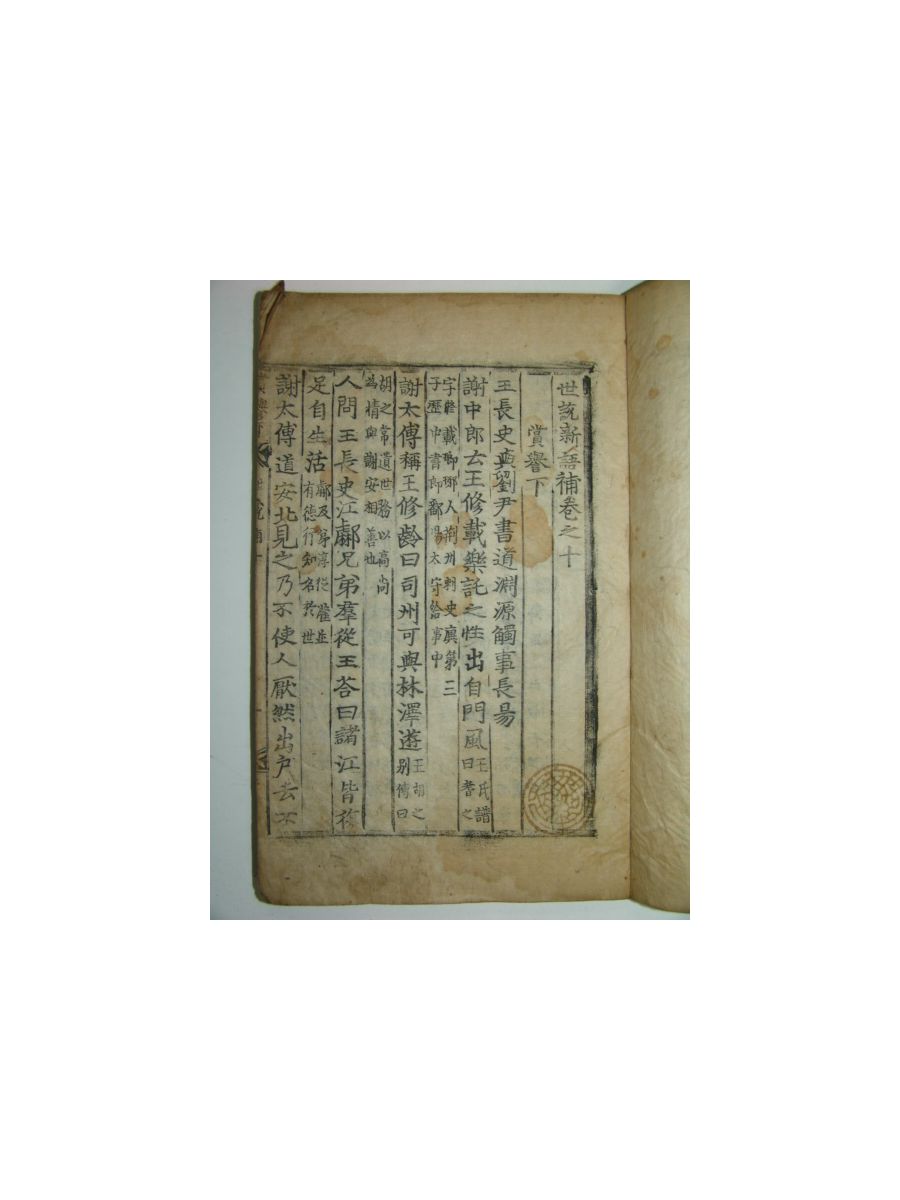 世說新語補卷之十
賞譽下
王長史與劉尹書道淵源觸事長易
謝中郎云王修載樂託之性出自門風王氏譜曰耆之
字脩載瑯琊人荊州刺史廙第三
子歷中書郎鄱陽太守給事中
謝太傅稱王修齡曰司州可與林澤遊王胡之別傳曰
胡之常遺世務以高尚
為情與謝安相善也
人問王長史江虨兄弟羣從王答曰諸江皆復
足自生活虨及弟淳從灌並有德行知名於世
謝太傅道安北見之乃不使人厭然出戶去不